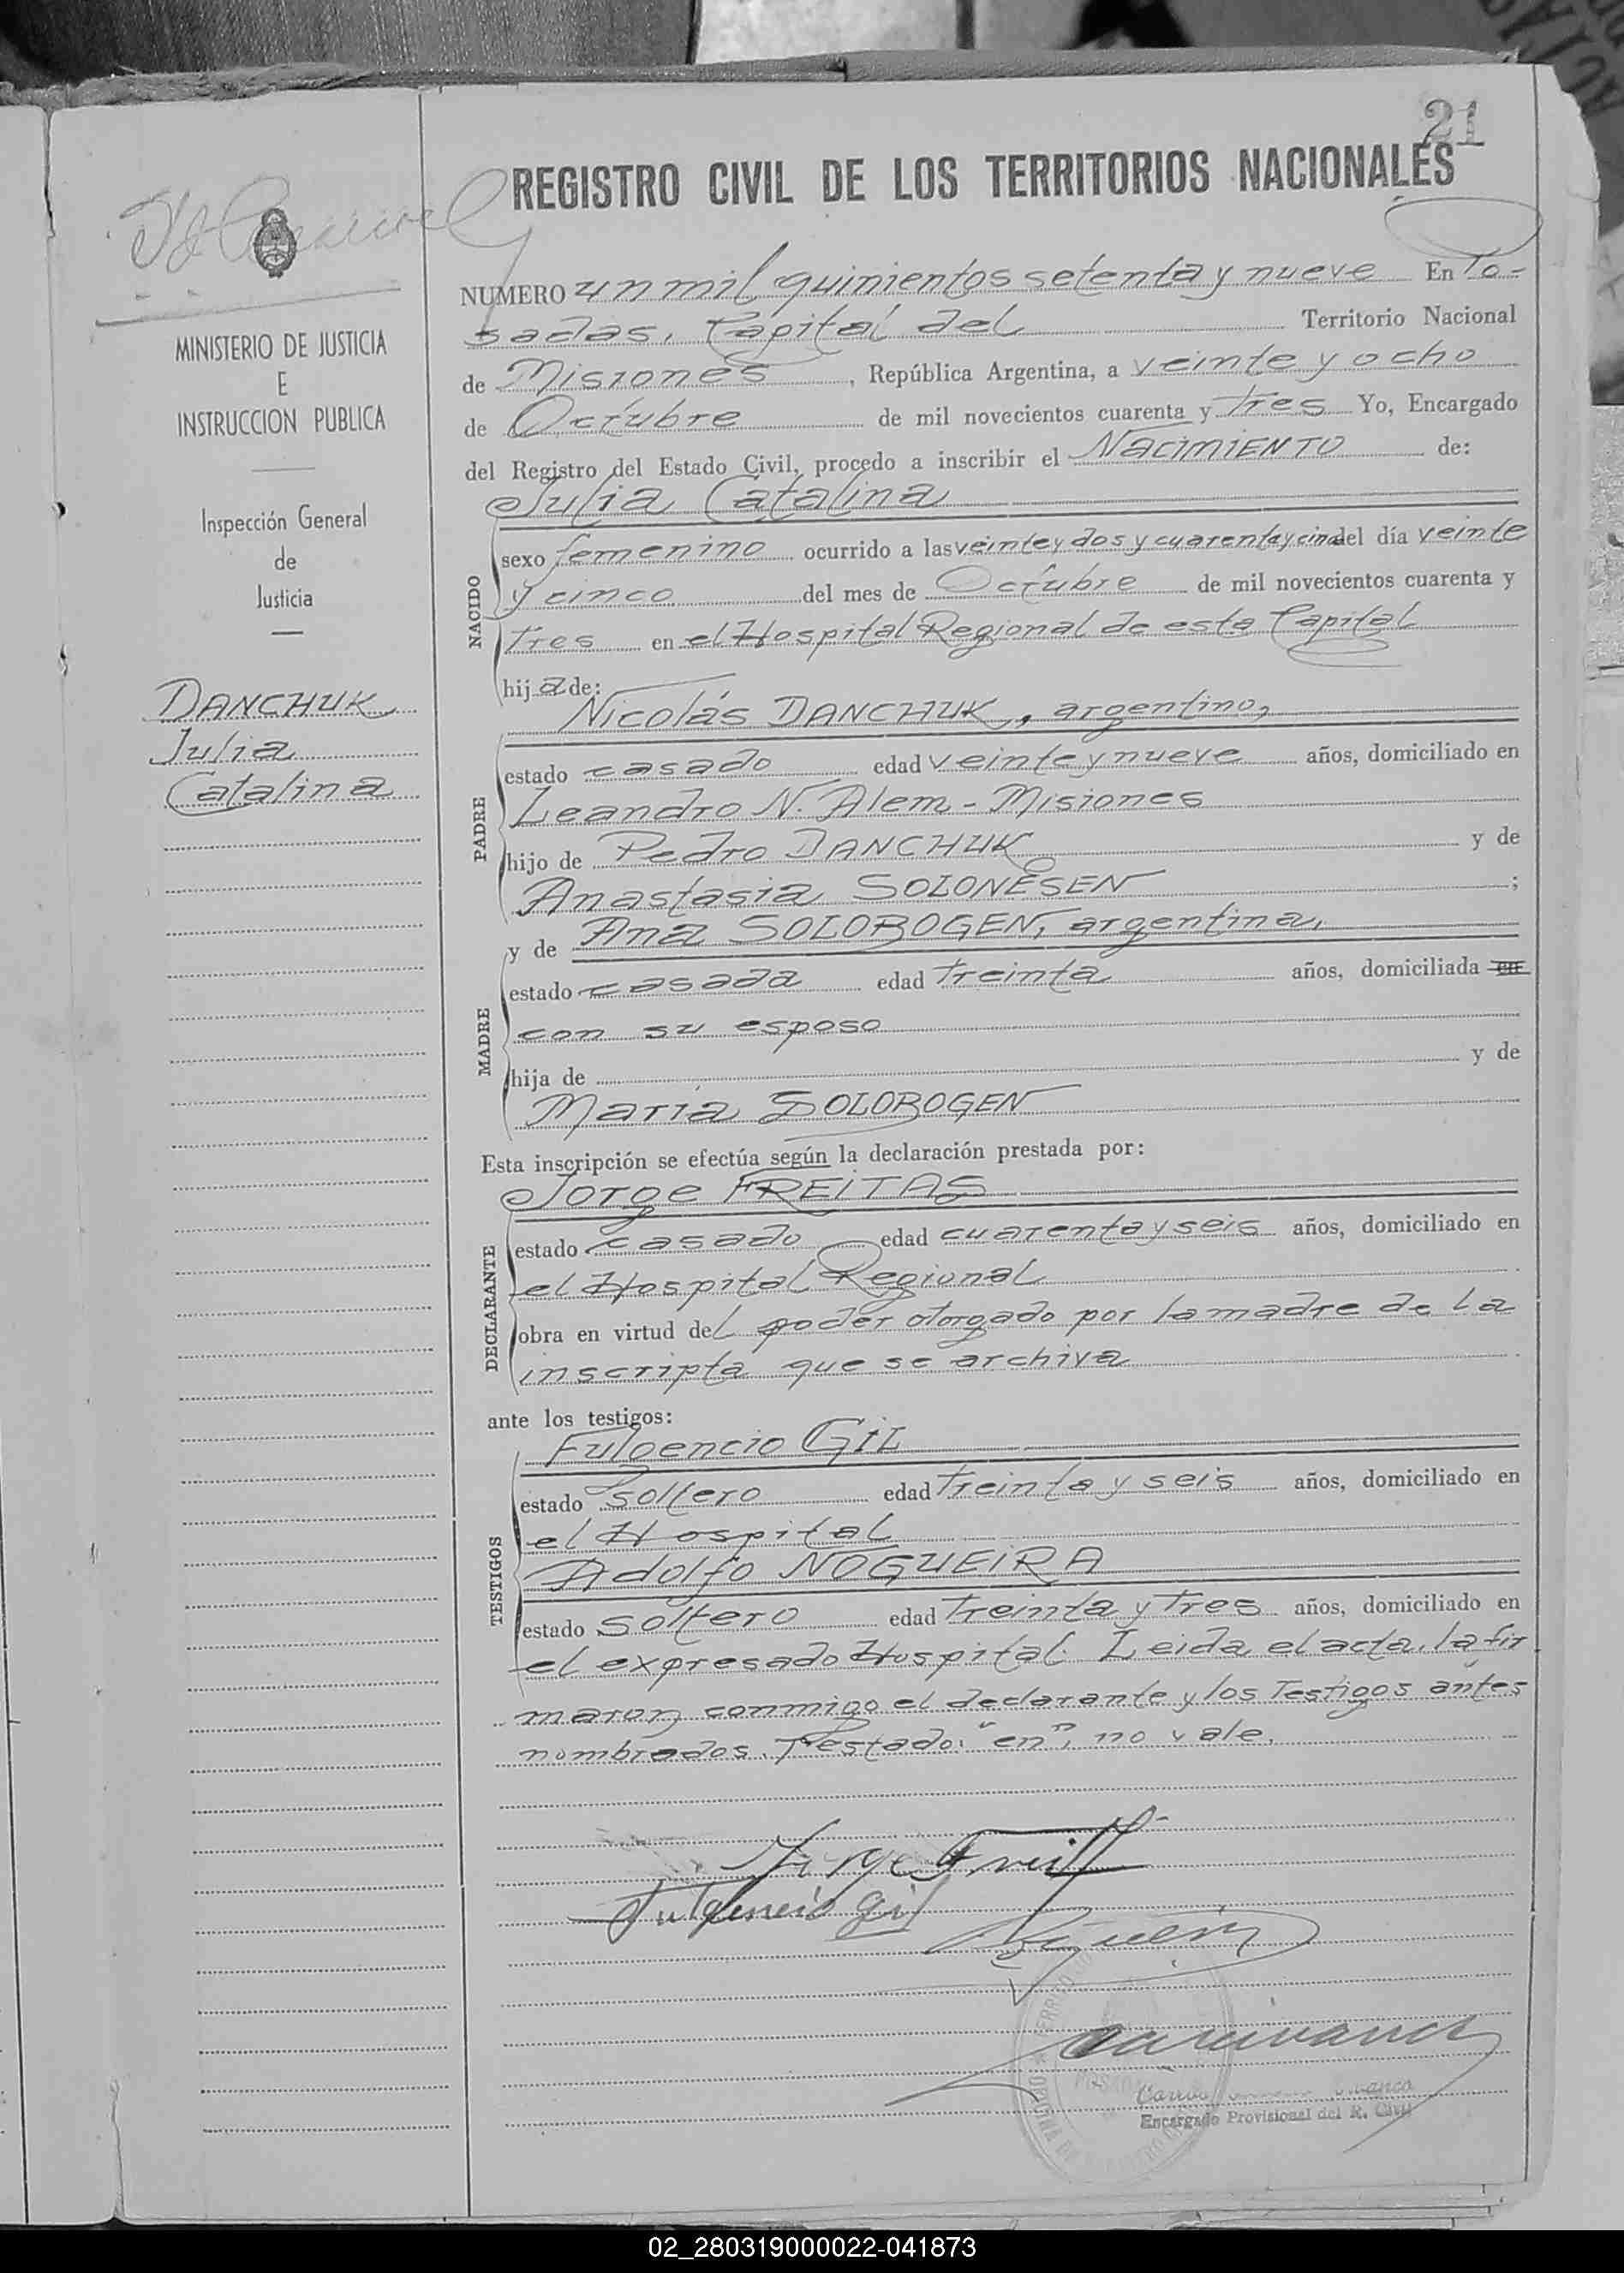 21
REGISTRO CIVIL DE LOS TERRITORIOS NACIONALES
MINISTERIO DE JUSTICIA
E
INSTRUCCION PUBLICA
Inspección General
de
Justicia
DANCHUK
Julia
Catalina
NUMERO un mil quinientos setenta y nueve En Po-
sadas, Capital del Territorio Nacional
de Misiones, República Argentina, a veinte y ocho
de Octubre de mil novecientos cuarenta y tres Yo, Encargado
del Registro del Estado Civil, procedo a inscribir el NACIMIENTO de:
Julia Catalina
NACIDO
sexo femenino ocurrido a las veinte y dos y cuarenta y cinco del día veinte
y cinco del mes de Octubre de mil novecientos cuarenta y
tres en el Hospital Regional de esta Capital
hija de:
Nicolás DANCHUK, argentino,
PADRE
estado casado edad veinte y nueve años, domiciliado en
Leandro N. Alem - Misiones
hijo de Pedro DANCHUK y de
Anastasia SOLONESEN ;
y de Ana SOLOBOGEN, argentina,
MADRE
estado casada edad treinta años, domiciliada en
con su esposo
hija de y de
María SOLOBOGEN
Esta inscripción se efectúa según la declaración prestada por:
Jorge FREITAS
DECLARANTE
estado casado edad cuarenta y seis años, domiciliado en
el Hospital Regional
obra en virtud del poder otorgado por la madre de la
inscripta que se archiva
ante los testigos:
Fulgencio GIL
TESTIGOS
estado soltero edad treinta y seis años, domiciliado en
el Hospital
Adolfo NOGUEIRA
estado soltero edad treinta y tres años, domiciliado en
el expresado Hospital. Leida el acta, la fir
maron conmigo el declarante y los Testigos antes
nombrados. Testado: "en", no vale.
Jorge Freit
Fulgencio Gil
Encargado Provisional del R. Civil
02_280319000022-041873